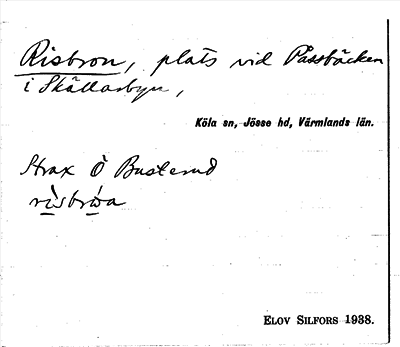 Risbron, plats vid Passbäcken
i Skällarbyn,
Köla sn, Jösse hd, Värmlands län.
Strax Ö Busterud
rìsbróa
ELOV SILFORS 1938.